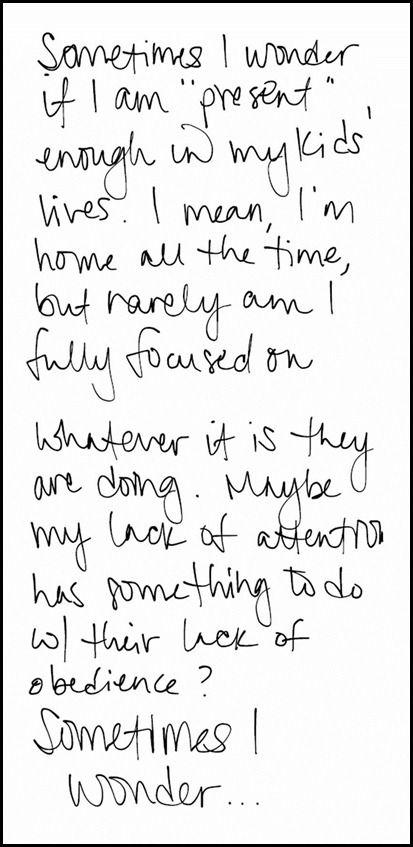 Sometimes I wonder
if I am "present"
enough in my kids'
lives. I mean, I'm
home all the time,
but rarely am I
fully focused on
whatever it is they
are doing. Maybe
my lack of attention
has something to do
w/ their lack of
obedience?
Sometimes I
wonder...